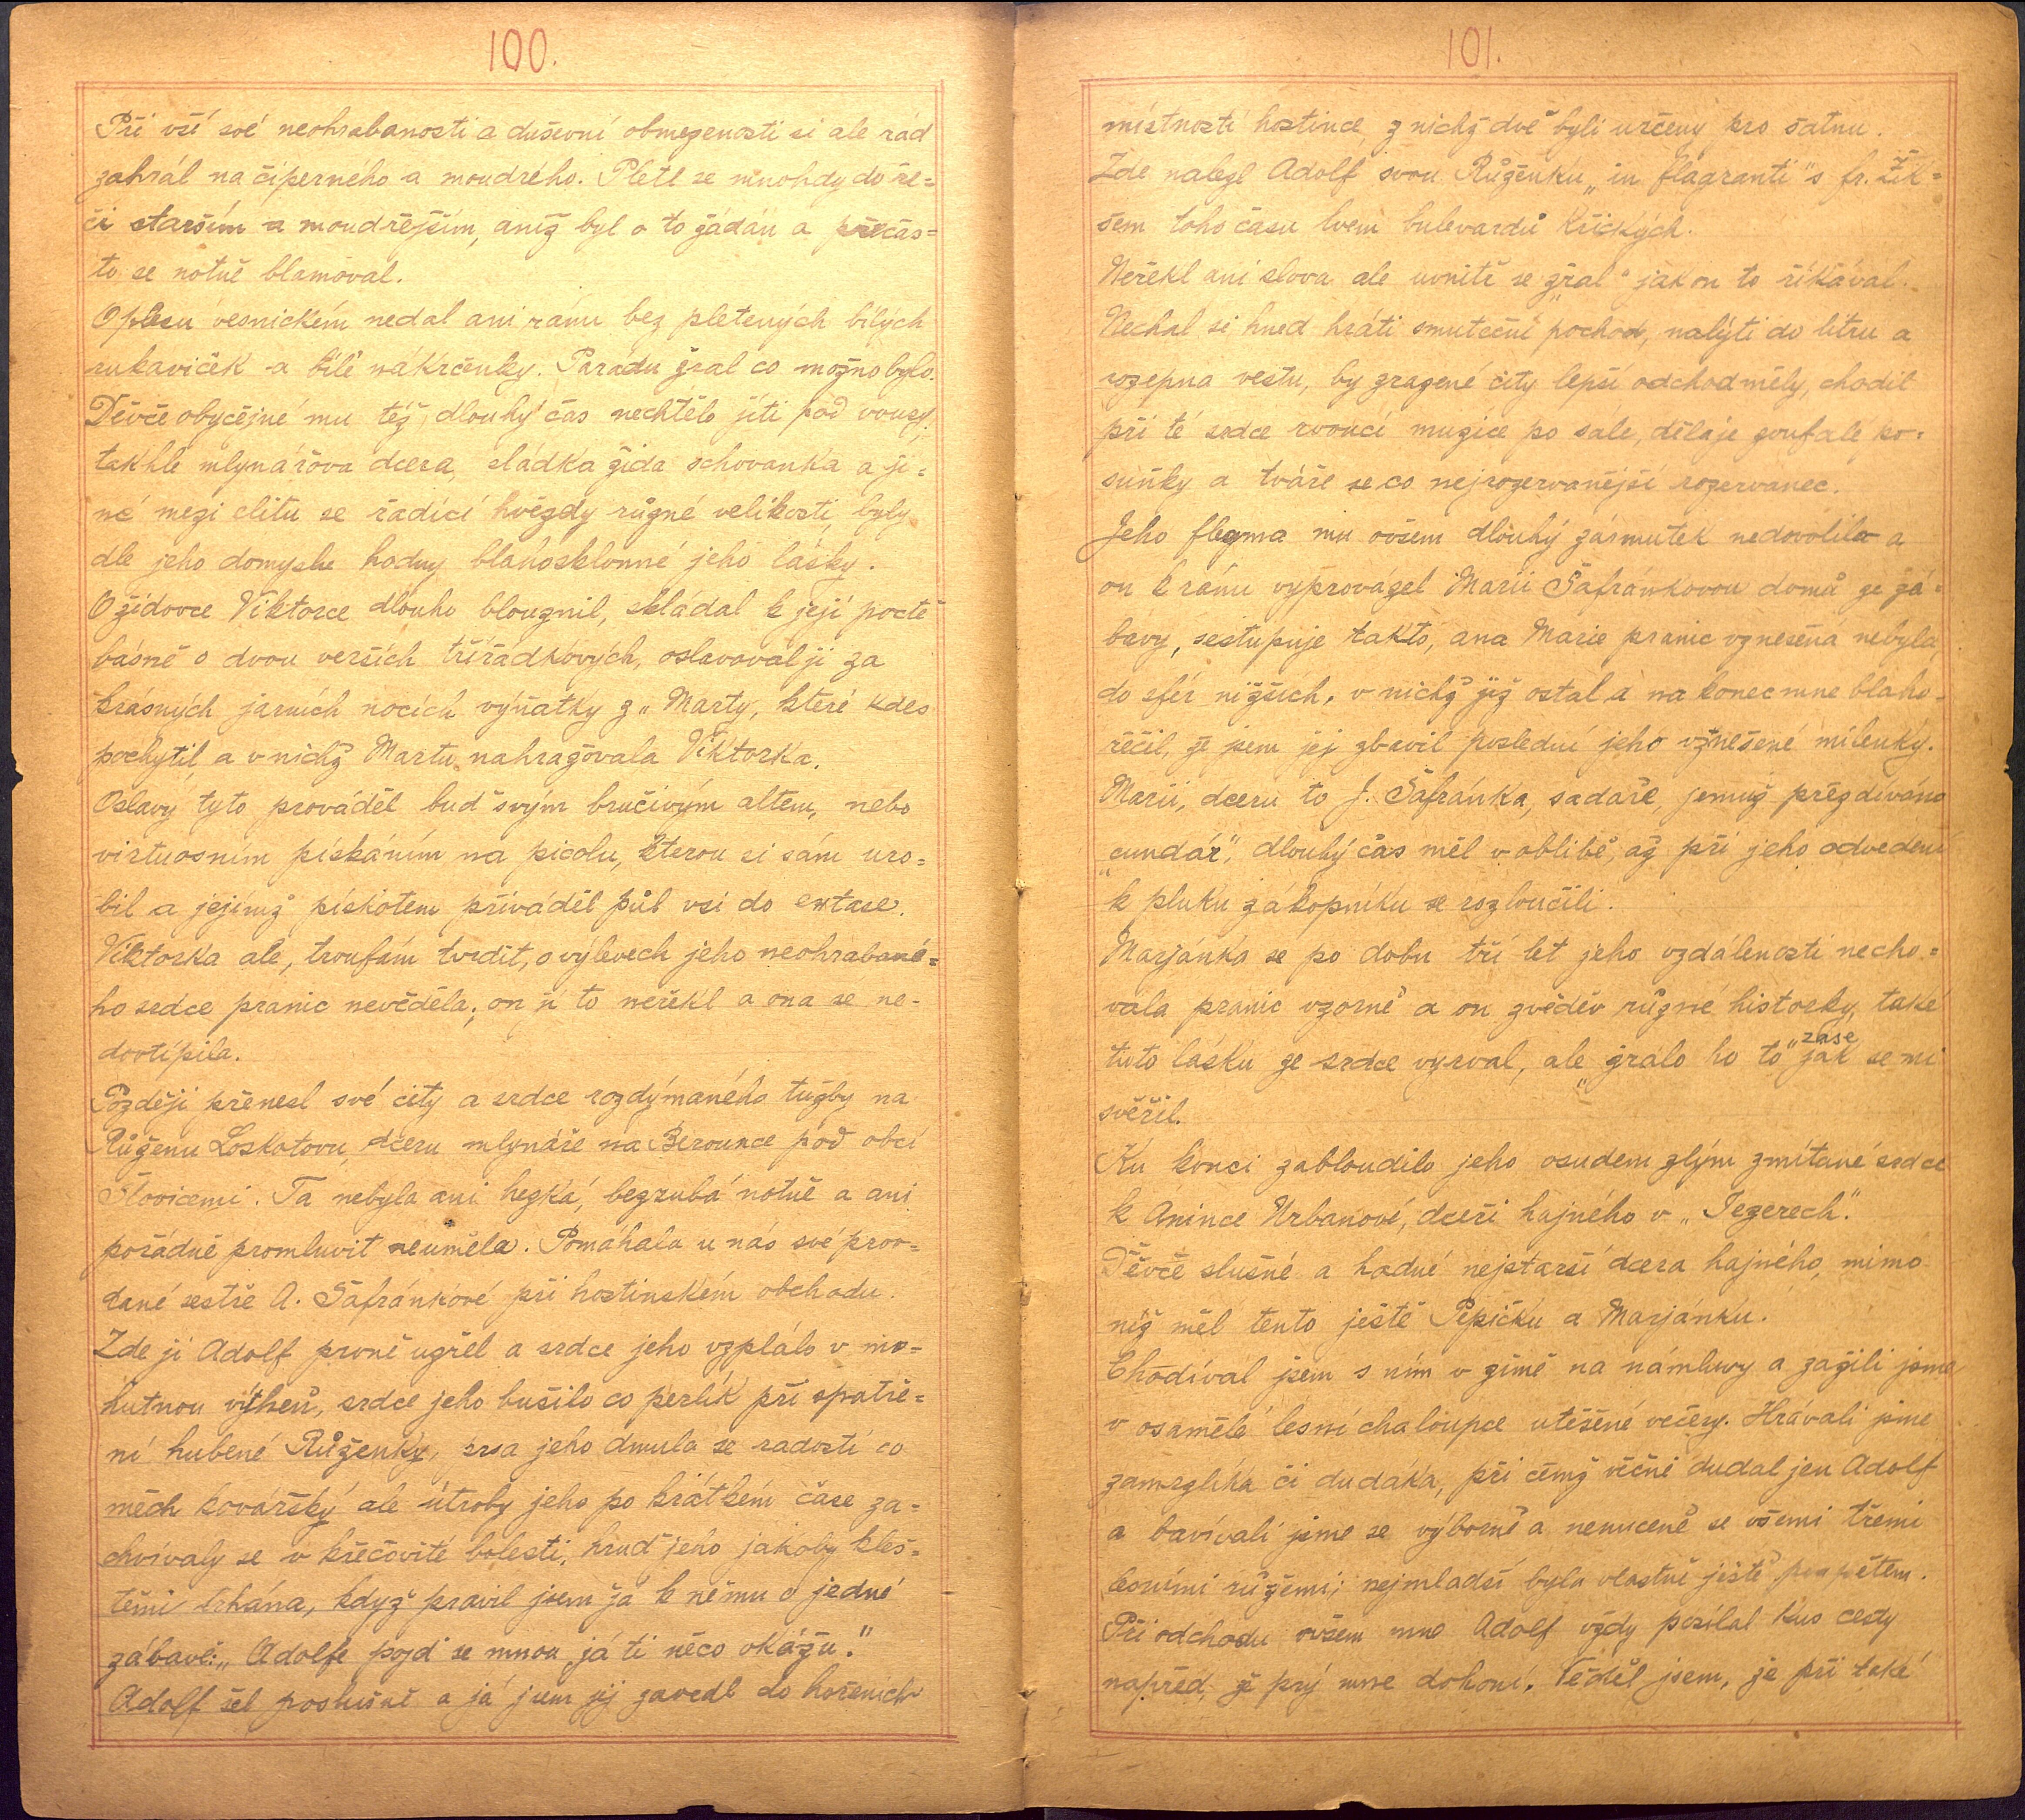 100.
Při vší své neohrabanosti a duševní obmezenosti si ale rád
zahrál na čiperného a moudrého. Pletl se mnohdy do ře=
či starším a moudřejším, aniž byl o to žádán a přečas=
to se notně blamoval.
O plesu vesnickém nedal ani ránu bez pletených bílých
rukaviček a bílé nákrčenky. Parádu žral co možno bylo.
Děvče obyčejné mu též dlouhý čas nechtělo jíti pod vousy;
takhle mlynářova dcera, sládka žida schovanka a ji=
né mezi elitu se řadící hvězdy různé velikosti byly
dle jeho domysle hodny blahosklonné jeho lásky.
O židovce Viktorce dlouho blouznil, skládal k její poctě
básně o dvou verších třířádkových, oslavoval ji za
krásných jarních nocích výňatky z „Marty, které kdes
pochytil a v nichž Martu nahražovala Viktorka.
Oslavy tyto prováděl buď svým bručivým altem, nebo
virtuosním pískáním na picolu, kterou si sám uro=
bil a jejímž pískotem přiváděl půl vsi do extase.
Viktorka ale, troufám tvrdit, o výlevech jeho neohrabané=
ho srdce pranic nevěděla; on jí to neřekl a ona se ne-
dovtípila.
Později přenesl své city a srdce rozdýmaného tužby na
Růženu Loskotovu, dceru mlynáře na Berounce pod obcí
Šlovicemi. Ta nebyla ani hezká, bezzubá notně a ani
pořádně promluvit neuměla. Pomáhala u nás své prov=
dané sestře A. Šafránkové při hostinském obchodu.
Zde ji Adolf prvně uzřel a srdce jeho vzplálo v mo=
hutnou výheň, srdce jeho bušilo co perlík při spatře=
ní hubené Růženky, prsa jeho dmula se radostí co
měch kovářský ale útroby jeho po krátkém čase za=
chvívaly se v křečovité bolesti, hruď jeho jakoby kleš=
těmi trhána, když pravil jsem já k němu o jedné
zábavě: „Adolfe pojď se mnou, já ti něco ukážu."
Adolf šel poslušně a já jsem jej zavedl do hořeních
101.
místností hostince z nichž dvě byli určeny pro šatnu.
Zde nalezl Adolf svou Růženku „in flagranti" s fr. Žik=
šem toho času lvem bulevardů Křických.
Neřekl ani slova ale uvnitř se „žral" jak on to říkával.
Nechal si hned hráti smuteční pochod, nalýti do litru a
rozepna vestu, by zrazené city lepší odchod měly, chodil
při té srdce rvoucí muzice po sále, dělaje zoufalé po=
suňky a tváře se co nejrozervanější rozervanec.
Jeho flegma mu ovšem dlouhý zármutek nedovolila a
on k ránu vyprovázel Marii Šafránkovou domů ze zá=
bavy, sestupuje takto, ana Marie pranic vznešená nebyla,
do sfér nižších, v nichž již ostal a na konec mne blaho=
řečil, že jsem jej zbavil poslední jeho vznešené milenky.
Marii, dceru to J. Šafránka, sadaře, jemuž přezdíváno
„cundár", dlouhý čas měl v oblibě, až při jeho odvedení
k pluku zákopníku se rozloučili.
Marjánka se po dobu tří let jeho vzdálenosti necho=
vala pranic vzorně a on zvěděv různé historky, také
tuto lásku ze srdce vyrval, ale „žralo ho to" zase jak se mi
svěřil.
Ku konci zabloudilo jeho osudem zlým zmítané srdce
k Anince Urbanové, dceři hajného v „Jezerech".
Děvče slušné a hodné nejstarší dcera hajného, mimo
níž měl tento ještě Pepičku a Marjánku.
Chodíval jsem s ním v zimě na námluvy a zažili jsme
v osamělé lesní chaloupce utěšené večery. Hrávali jsme
zamrzlíka či dudáka, při čemž věčně dudal jen Adolf
a bavívali jsme se výborně a nenuceně se všemi třemi
lesními růžemi; nejmladší byla vlastně ještě poupětem.
Při odchodu ovšem mne Adolf vždy posílal kus cesty
napřed, že prý mne dohoní. Věděl jsem, že při také